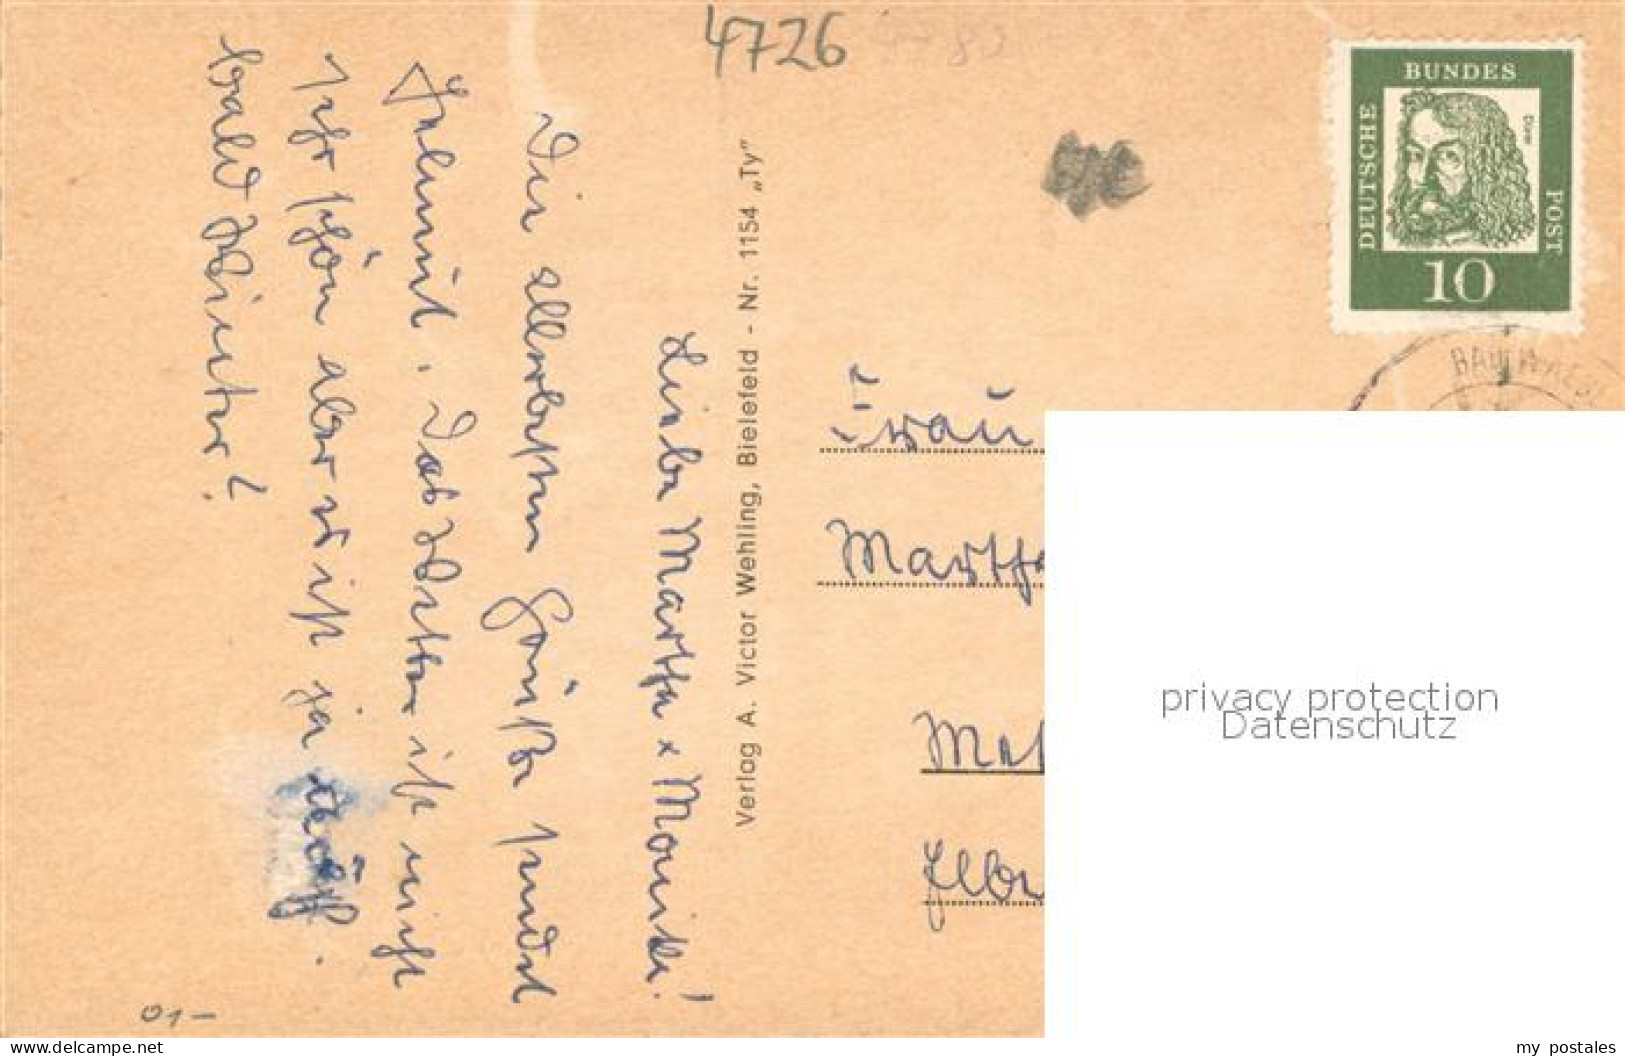 4726
BUNDES
DEUTSCHE
POST
Dürer
10
Liebe Martha + Monika!
Die allerbesten Grüße sendet
Helmut. Das Wetter ist nicht
sehr schön aber es ist ja
bald Winter!
Verlag A. Victor Wehling, Bielefeld - Nr. 1154 „Ty"
Frau
Martha
privacy protection
Datenschutz
01-
www.delcampe.net
my_postales